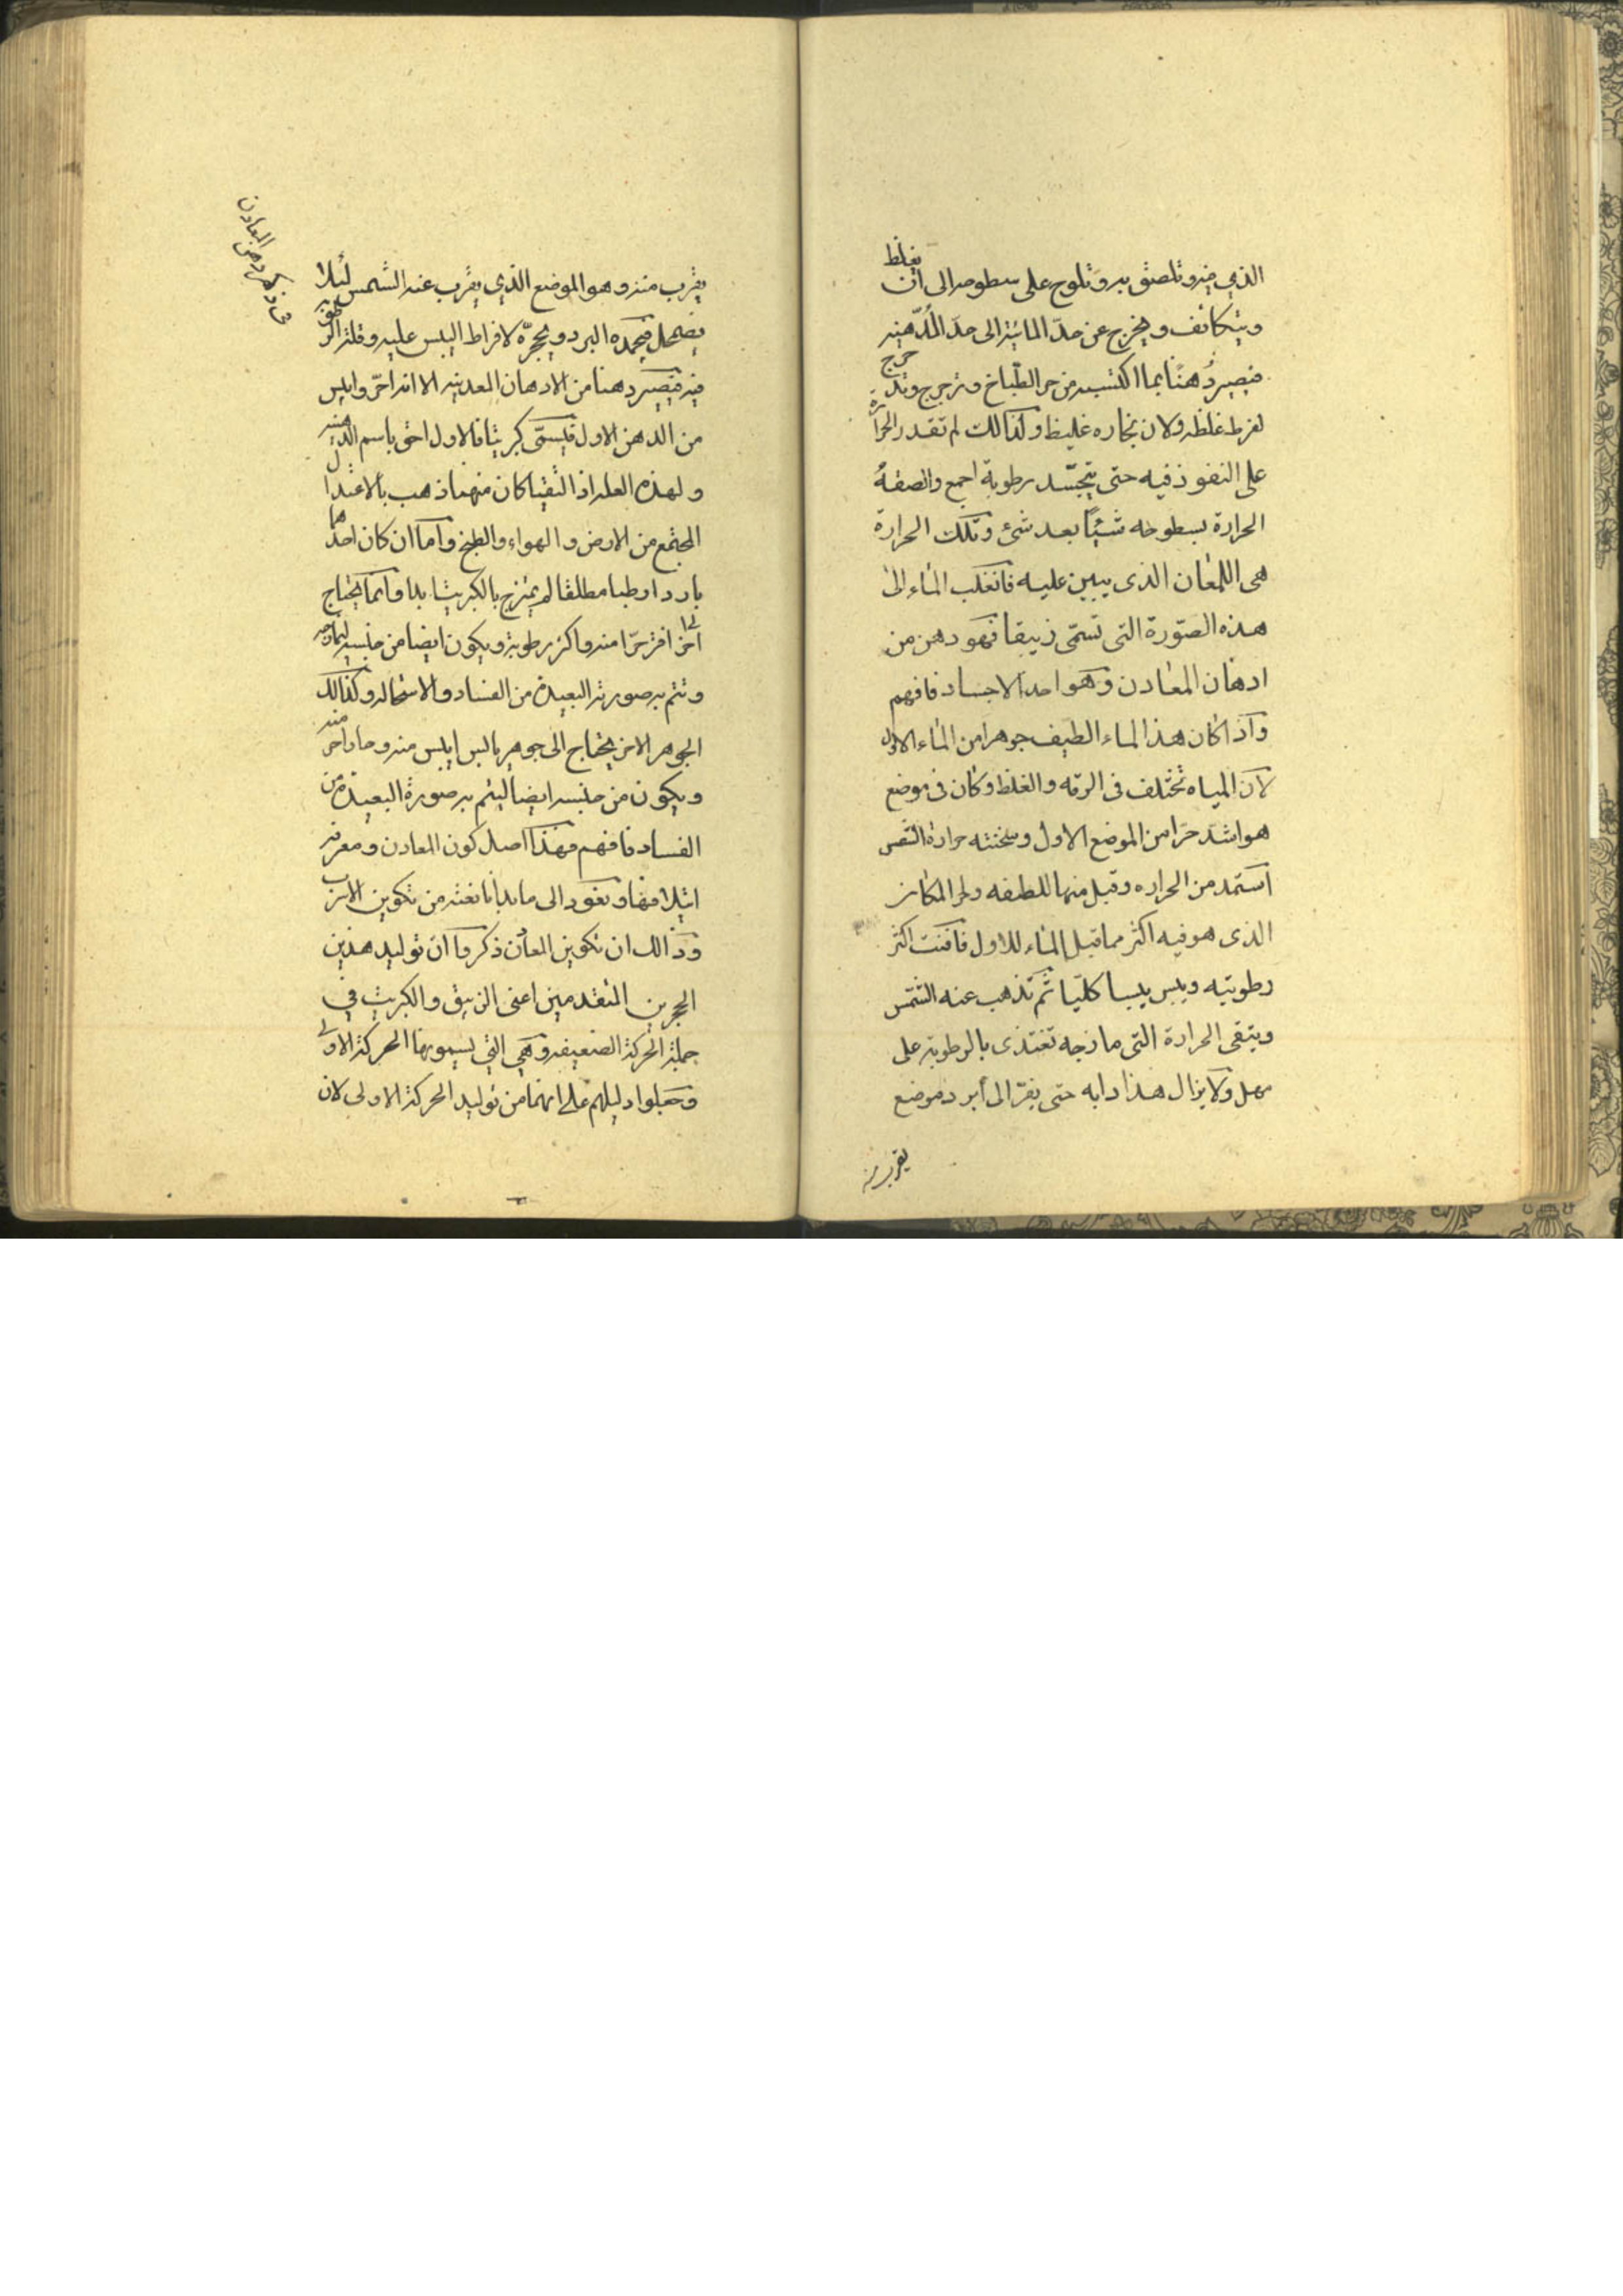 الذي فيه وتلصق به وتلوح على سطوحه الى ان يغلظ
ويتكاثف ويخرج عن حدّ المائية الى حدّ الدّهنيه
فيصيرُ دهنًا بما اكتسبه من حر الطّباخ وترجرج وتدحرج
لفرط غلظه ولان بخاره غليظ وكذالك لم تقدر الحرارة
على النفوذ فيه حتى يتجسّد رطوبة اجمع والصقة
الحرارة بسطوحه شيئًا بعد شئ وتلك الحرارة
هى اللمعان الذى يبين عليه فانقلب الماء الى
هذه الصّورة التى تسمّى زيبقا فهو دهن من
ادهان المعادن وهو احد الاجساد فافهم
وآذا كان هذا الماء الطيف جوهرا من الماء الاول
لآن المياه تختلف فى الرقه والغلظ وكان فى موضع
هو اشدّ حرّا من الموضع الاول وسخنته حرارة الشمس
استمد من الحراره وقبل منها للطفه ولحر المكان
الذى هو فيه اكثر مما قبل الماء للاول فافنت اكثر
رطوبتيه ويبس يبسا كليّا ثم تذهب عنه الشمس
ويتبقى الحرارة التى مازجه تغتذى بالرطوبة على
مهل ولا يزال هذا دابه حتى يفرّ الى أبرد موضع
يقرب منه
يقرب منه وهو الموضع الذي يقرب عنه الشمس لئلا
يضمحل فيجمده البرد ويحجرّه لافراط اليبس عليه وقلة الرطوبة
فيه فيصير دهنا من الادهان المعدنيه الا انه احرّ وايبس
من الدهن الاول فيسمّى كبريتا فالاول احق باسم الدهنيه
ولهذه العله اذا التقيا كان منهما ذهب بالاعتدال
المجتمع من الارض والهواء والطبخ وآما ان كان احدهما
باردا رطبا مطلقا لم يمتزج بالكبريت ابدا وآنما يحتاج الى
آخر افتر حرّا منه واكثر رطوبة ويكون ايضا من جنسه ليمازجه
وتتم به صورته البعيدة من الفساد والاستحاله وكذالك
الجوهر الاخر يحتاج الى جوهر يابس ايبس منه وحار احر منه
ويكون من جنسه ايضا ليتم به صورة البعيدة من
الفساد فافهم فهذا اصل كون المعادن ومعرفة
ائتلافها ونعود الى ما بدانا نعته من تكوين الاسرب
وذالك ان تكوين المعادن ذكروا آن توليد هذين
الحجرين المتقدمين اعنى الزيبق والكبريت في
جملة الحركة الضعيفه وهي التي يسمونها الحركة الاولى
وجعلوا دليلهم على انهما من توليد الحركة الاولى لان
فى ذكر دهن المعادن